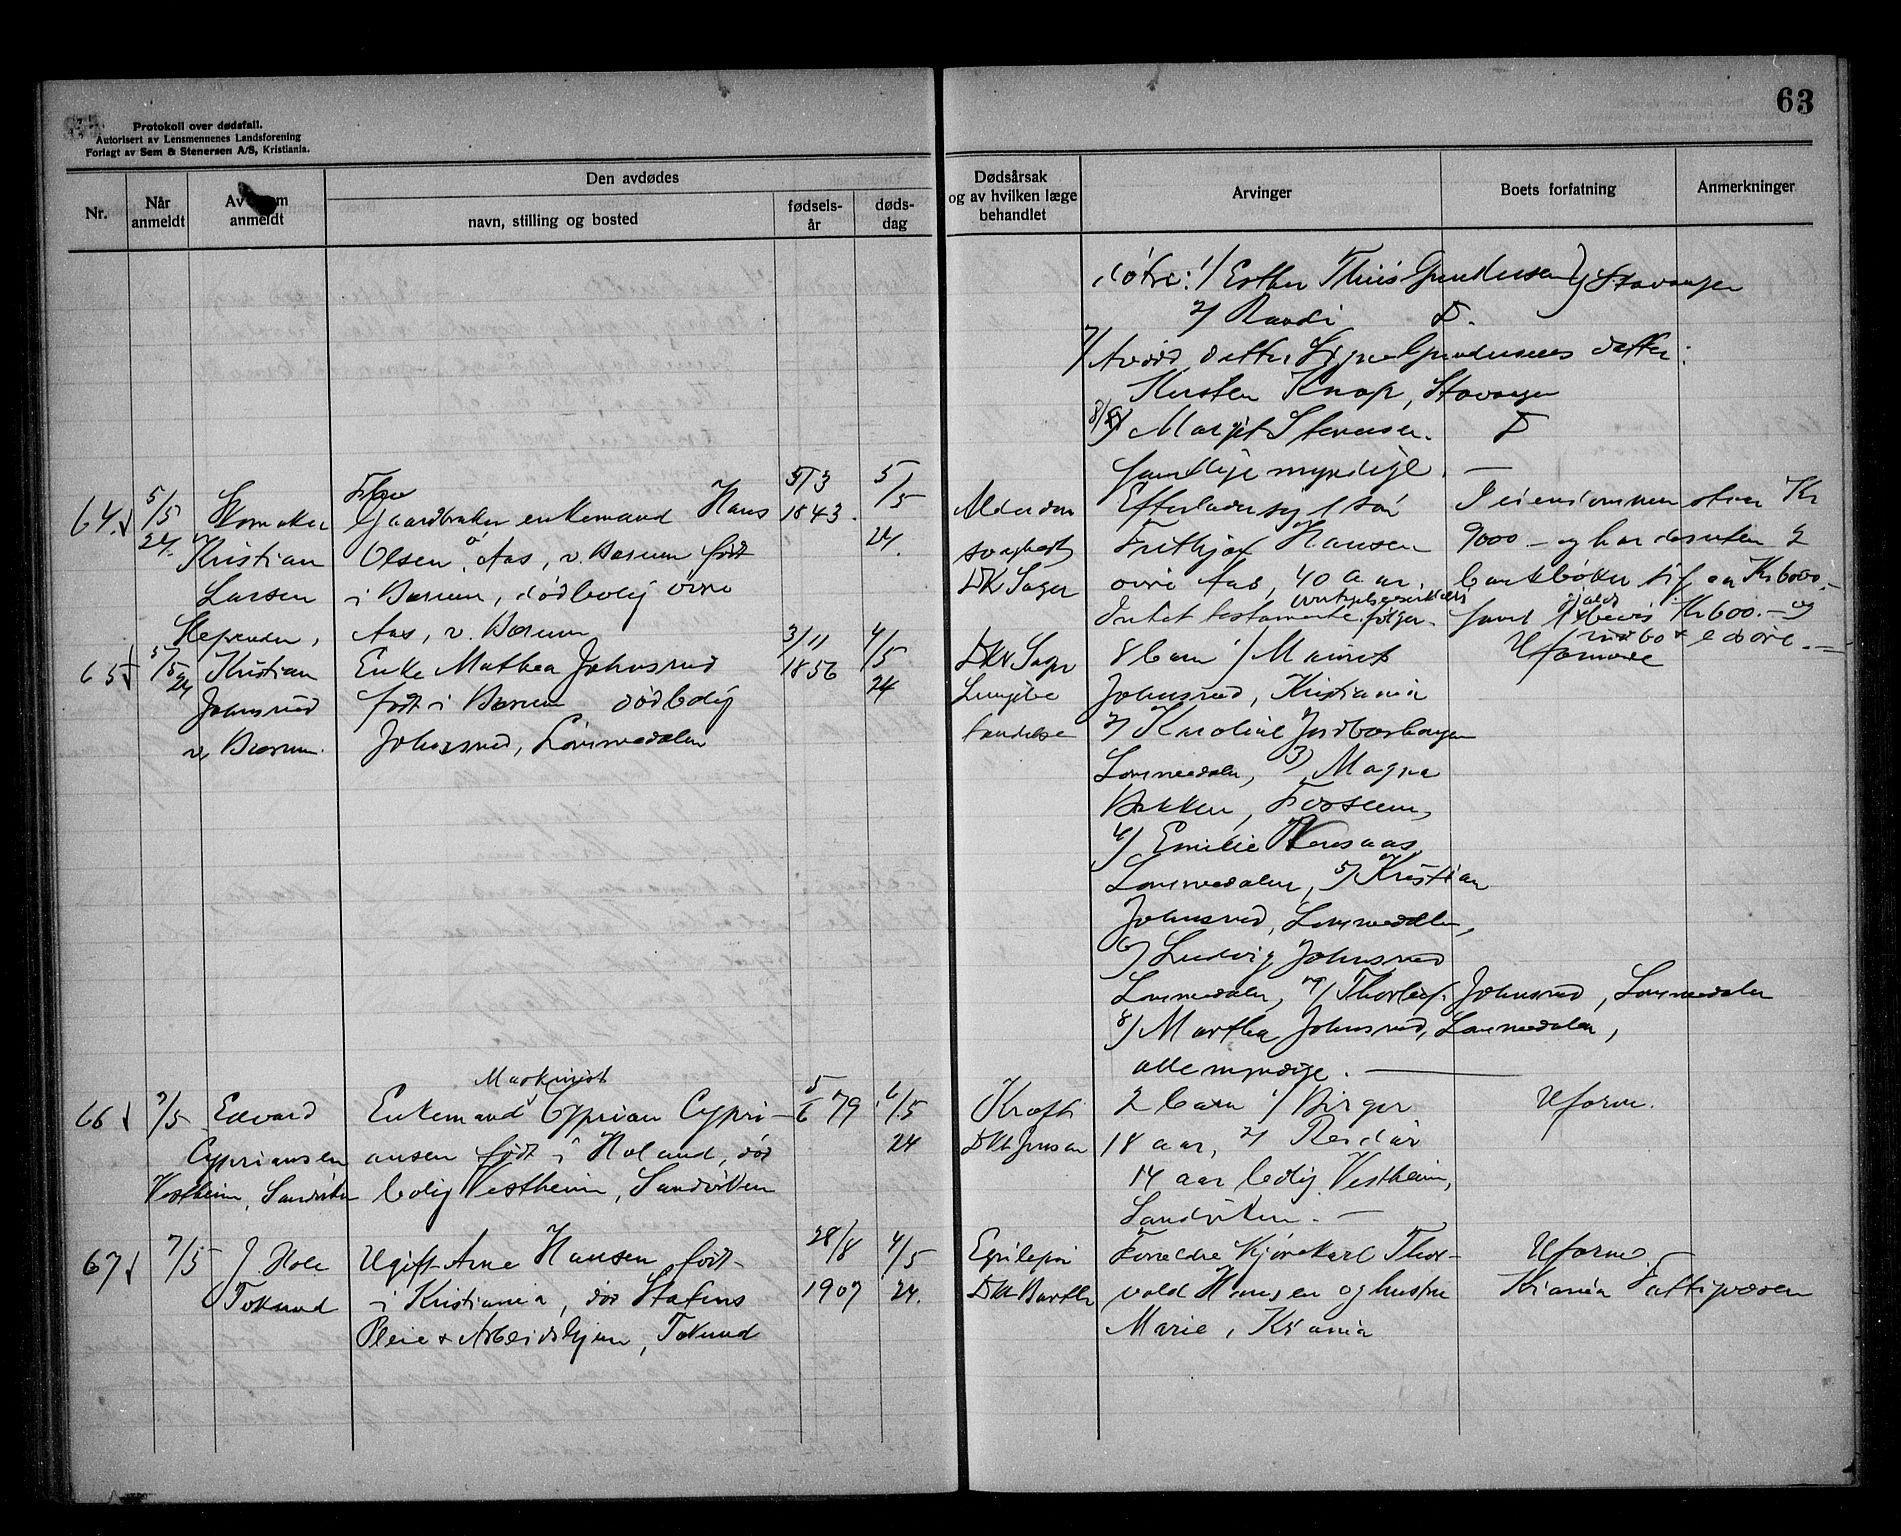 63
Protokoll over dødsfall.
Autorisert av Lensmennenes Landsforening
Forlagt av Sem & Stenersen A/S, Kristiania.
Nr.
Når anmeldt
Av hvem anmeldt
Den avdødes
navn, stilling og bosted
fødselsår
dødsdag
Dødsårsak og av hvilken læge behandlet
Arvinger
Boets forfatning
Anmerkninger
døtre: 1/ Esther Thiis Gundersen, Stavanger
2/ Randi D.
7/ Avdød datter Signe Gundersens datter:
Kirsten Knap, Stavanger
8/ Margit Stenersen. D
samtlige myndige. —
64. 5/5 24. Skomaker Kristian Larsen Slependen,
Gaardbruker enkemand Hans
Olsen, Aas, v. Bærum født
i Bærum, død bolig øvre
Aas, v. Bærum
5/3 1843.
5/5 24.
Alderdomssvaghet
DHr Sager
Efterlader sig 1 søn
Frithjof Hansen
øvre Aas, 40 aar.
Intet testamente følger.
I eiendommen står Kr
9000 — og har desuten 2
bankbøker tils. ca Kr 6000.—
samt gjeldsbevis Kr 600.— og
indbo + løsøre. —
65 5/5 24 Kristian Johnsrud v. Bærum.
Enke Mathea Johnsrud
født i Bærum død bolig
Johnsrud, Lommedalen
3/11 1856
4/5 24
DHr Sager
Lungebetændelse
8 barn 1/ Maurits
Johnsrud, Kristiania
2/ Karoline Jordbærhaugen
Lommedalen, 3/ Magna
Bakken, Fossum,
4/ Emilie
Lommedalen, 5/ Kristian
Johnsrud, Lommedalen,
6/ Ludvig Johnsrud
Lommedalen, 7/ Thorleif Johnsrud, Lommedalen
8/ Martha Johnsrud, Lommedalen,
alle myndige. —
Uformue
66 7/5 Edvard Cypriansen Vestheim, Sandviken
Maskinist
Enkemand Cyprian Cypri-
ansen født i Høland, død
bolig Vestheim, Sandviken
5/6 79
6/5 24
Kræft
DHr Jensen
2 barn 1/ Birger
18 aar, 2/ Reidar
14 aar bolig Vestheim,
Sandviken. —
Uformue.
67 7/5 J. Hole Tokerud
Ugift Arne Hansen født
i Kristiania, død Statens
Pleie & Arbeidshjem, Tokerud
28/8 1907
4/5 24.
Epilepsi
DHr Barth
Forældre Kjørekarl Thor-
vald Hansen og hustru
Marie, Kr.ania
Uformue.
Kr.ania Fattigvæsen